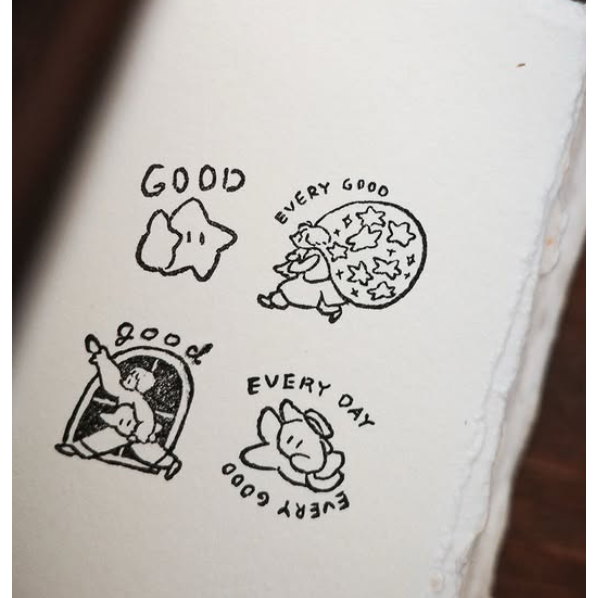 GOOD
EVERY GOOD
good
EVERY DAY
EVERY GOOD